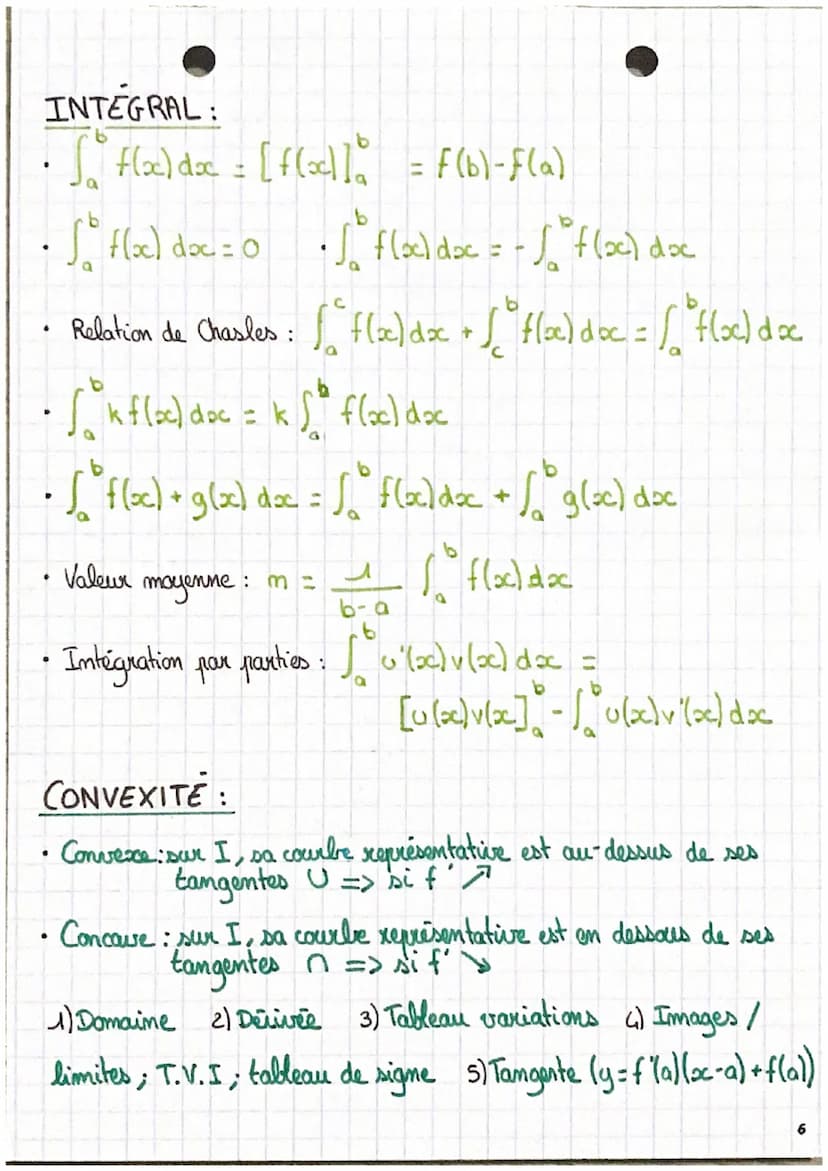 INTÉGRAL :
• ∫ₐᵇ f(x) dx = [f(x)]ₐᵇ = F(b)-F(a)
• ∫ₐᵇ f(x) dx = 0 • ∫ₐᵇ f(x) dx = - ∫ₐᵇ f(x) dx
• Relation de Chasles : ∫ₐᶜ f(x) dx + ∫꜀ᵇ f(x) dx = ∫ₐᵇ f(x) dx
• ∫ₐᵇ k f(x) dx = k ∫ₐᵇ f(x) dx
• ∫ₐᵇ f(x) + g(x) dx = ∫ₐᵇ f(x) dx + ∫ₐᵇ g(x) dx
• Valeur moyenne : m = 1/(b-a) ∫ₐᵇ f(x) dx
• Intégration par parties : ∫ₐᵇ u'(x) v(x) dx =
[u(x)v(x]ₐᵇ - ∫ₐᵇ u(x) v'(x) dx
CONVEXITÉ :
• Convexe : sur I, sa courbe représentative est au-dessus de ses
tangentes ∪ => si f' ↗
• Concave : sur I, sa courbe représentative est en dessous de ses
tangentes ∩ => si f' ↘
1) Domaine 2) Dérivée 3) Tableau variations 4) Images /
limites ; T.V.I ; tableau de signe 5) Tangente (y = f'(a)(x-a) + f(a))
6